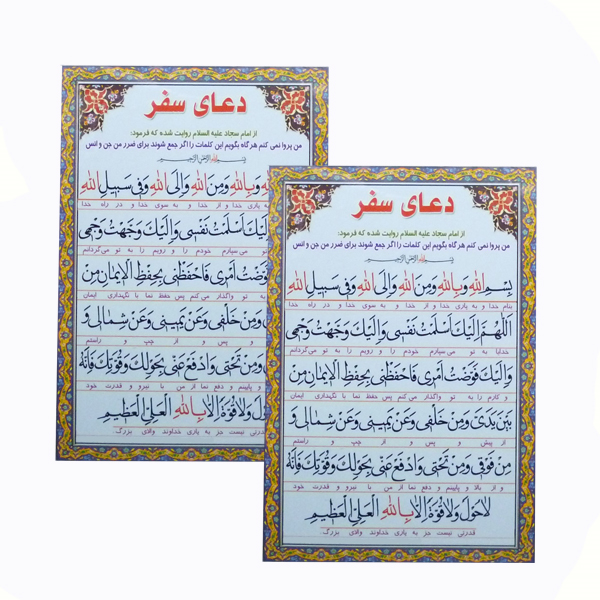 دعای سفر
از امام سجاد علیه السلام روایت شده که فرمود:
من پروا نمی کنم هرگاه بگویم این کلمات را اگر جمع شوند برای ضرر من جن و انس
بِسْمِ اللهِ الرَّحْمنِ الرَّحیمِ
بِاللهِ وَمِنَ اللهِ وَاِلَی اللهِ وَفی سَبیلِ اللهِ
به یاری خدا و از خدا و به سوی خدا و در راه خدا
اِلَیْکَ اَسْلَمْتُ نَفْسی وَاِلَیْکَ وَجَّهْتُ وَجْهی
تو می سپارم خودم را و رویم را به تو می‌گردانم
فَوَّضْتُ اَمْری فَاحْفَظْنی بِحِفْظِ الْایمانِ مِنْ
به تو واگذار می کنم پس حفظ نما با نگهداری ایمان
وَمِنْ خَلْفی وَعَنْ یَمینی وَعَنْ شِمالی وَ
و پس و از چپ و راستم
وَمِنْ تَحْتی وَادْفَعْ عَنّی بِحَوْلِکَ وَقُوَّتِکَ فَاِنَّهُ
و پایینم و دفع نما از من با نیرو و قدرت خود
حَوْلَ وَلا قُوَّةَ اِلّا بِاللهِ الْعَلِیِّ الْعَظیمِ
قدرتی نیست جز به یاری خداوند والای بزرگ
دعای سفر
از امام سجاد علیه السلام روایت شده که فرمود:
من پروا نمی کنم هرگاه بگویم این کلمات را اگر جمع شوند برای ضرر من جن و انس
بِسْمِ اللهِ الرَّحْمنِ الرَّحیمِ
بِسْمِ اللهِ وَبِاللهِ وَمِنَ اللهِ وَاِلَی اللهِ وَفی سَبیلِ اللهِ
بنام خدا و به یاری خدا و از خدا و به سوی خدا و در راه خدا
اَللّهُمَّ اِلَیْکَ اَسْلَمْتُ نَفْسی وَاِلَیْکَ وَجَّهْتُ وَجْهی
خدایا به تو می سپارم خودم را و رویم را به تو می‌گردانم
وَاِلَیْکَ فَوَّضْتُ اَمْری فَاحْفَظْنی بِحِفْظِ الْایمانِ مِنْ
و کارم را به تو واگذار می کنم پس حفظ نما با نگهداری ایمان
بَیْنِ یَدَیَّ وَمِنْ خَلْفی وَعَنْ یَمینی وَعَنْ شِمالی وَ
از پیش و پس و از چپ و راستم
مِنْ فَوْقی وَمِنْ تَحْتی وَادْفَعْ عَنّی بِحَوْلِکَ وَقُوَّتِکَ فَاِنَّهُ
و از بالا و پایینم و دفع نما از من با نیرو و قدرت خود
لاحَوْلَ وَلا قُوَّةَ اِلّا بِاللهِ الْعَلِیِّ الْعَظیمِ
قدرتی نیست جز به یاری خداوند والای بزرگ